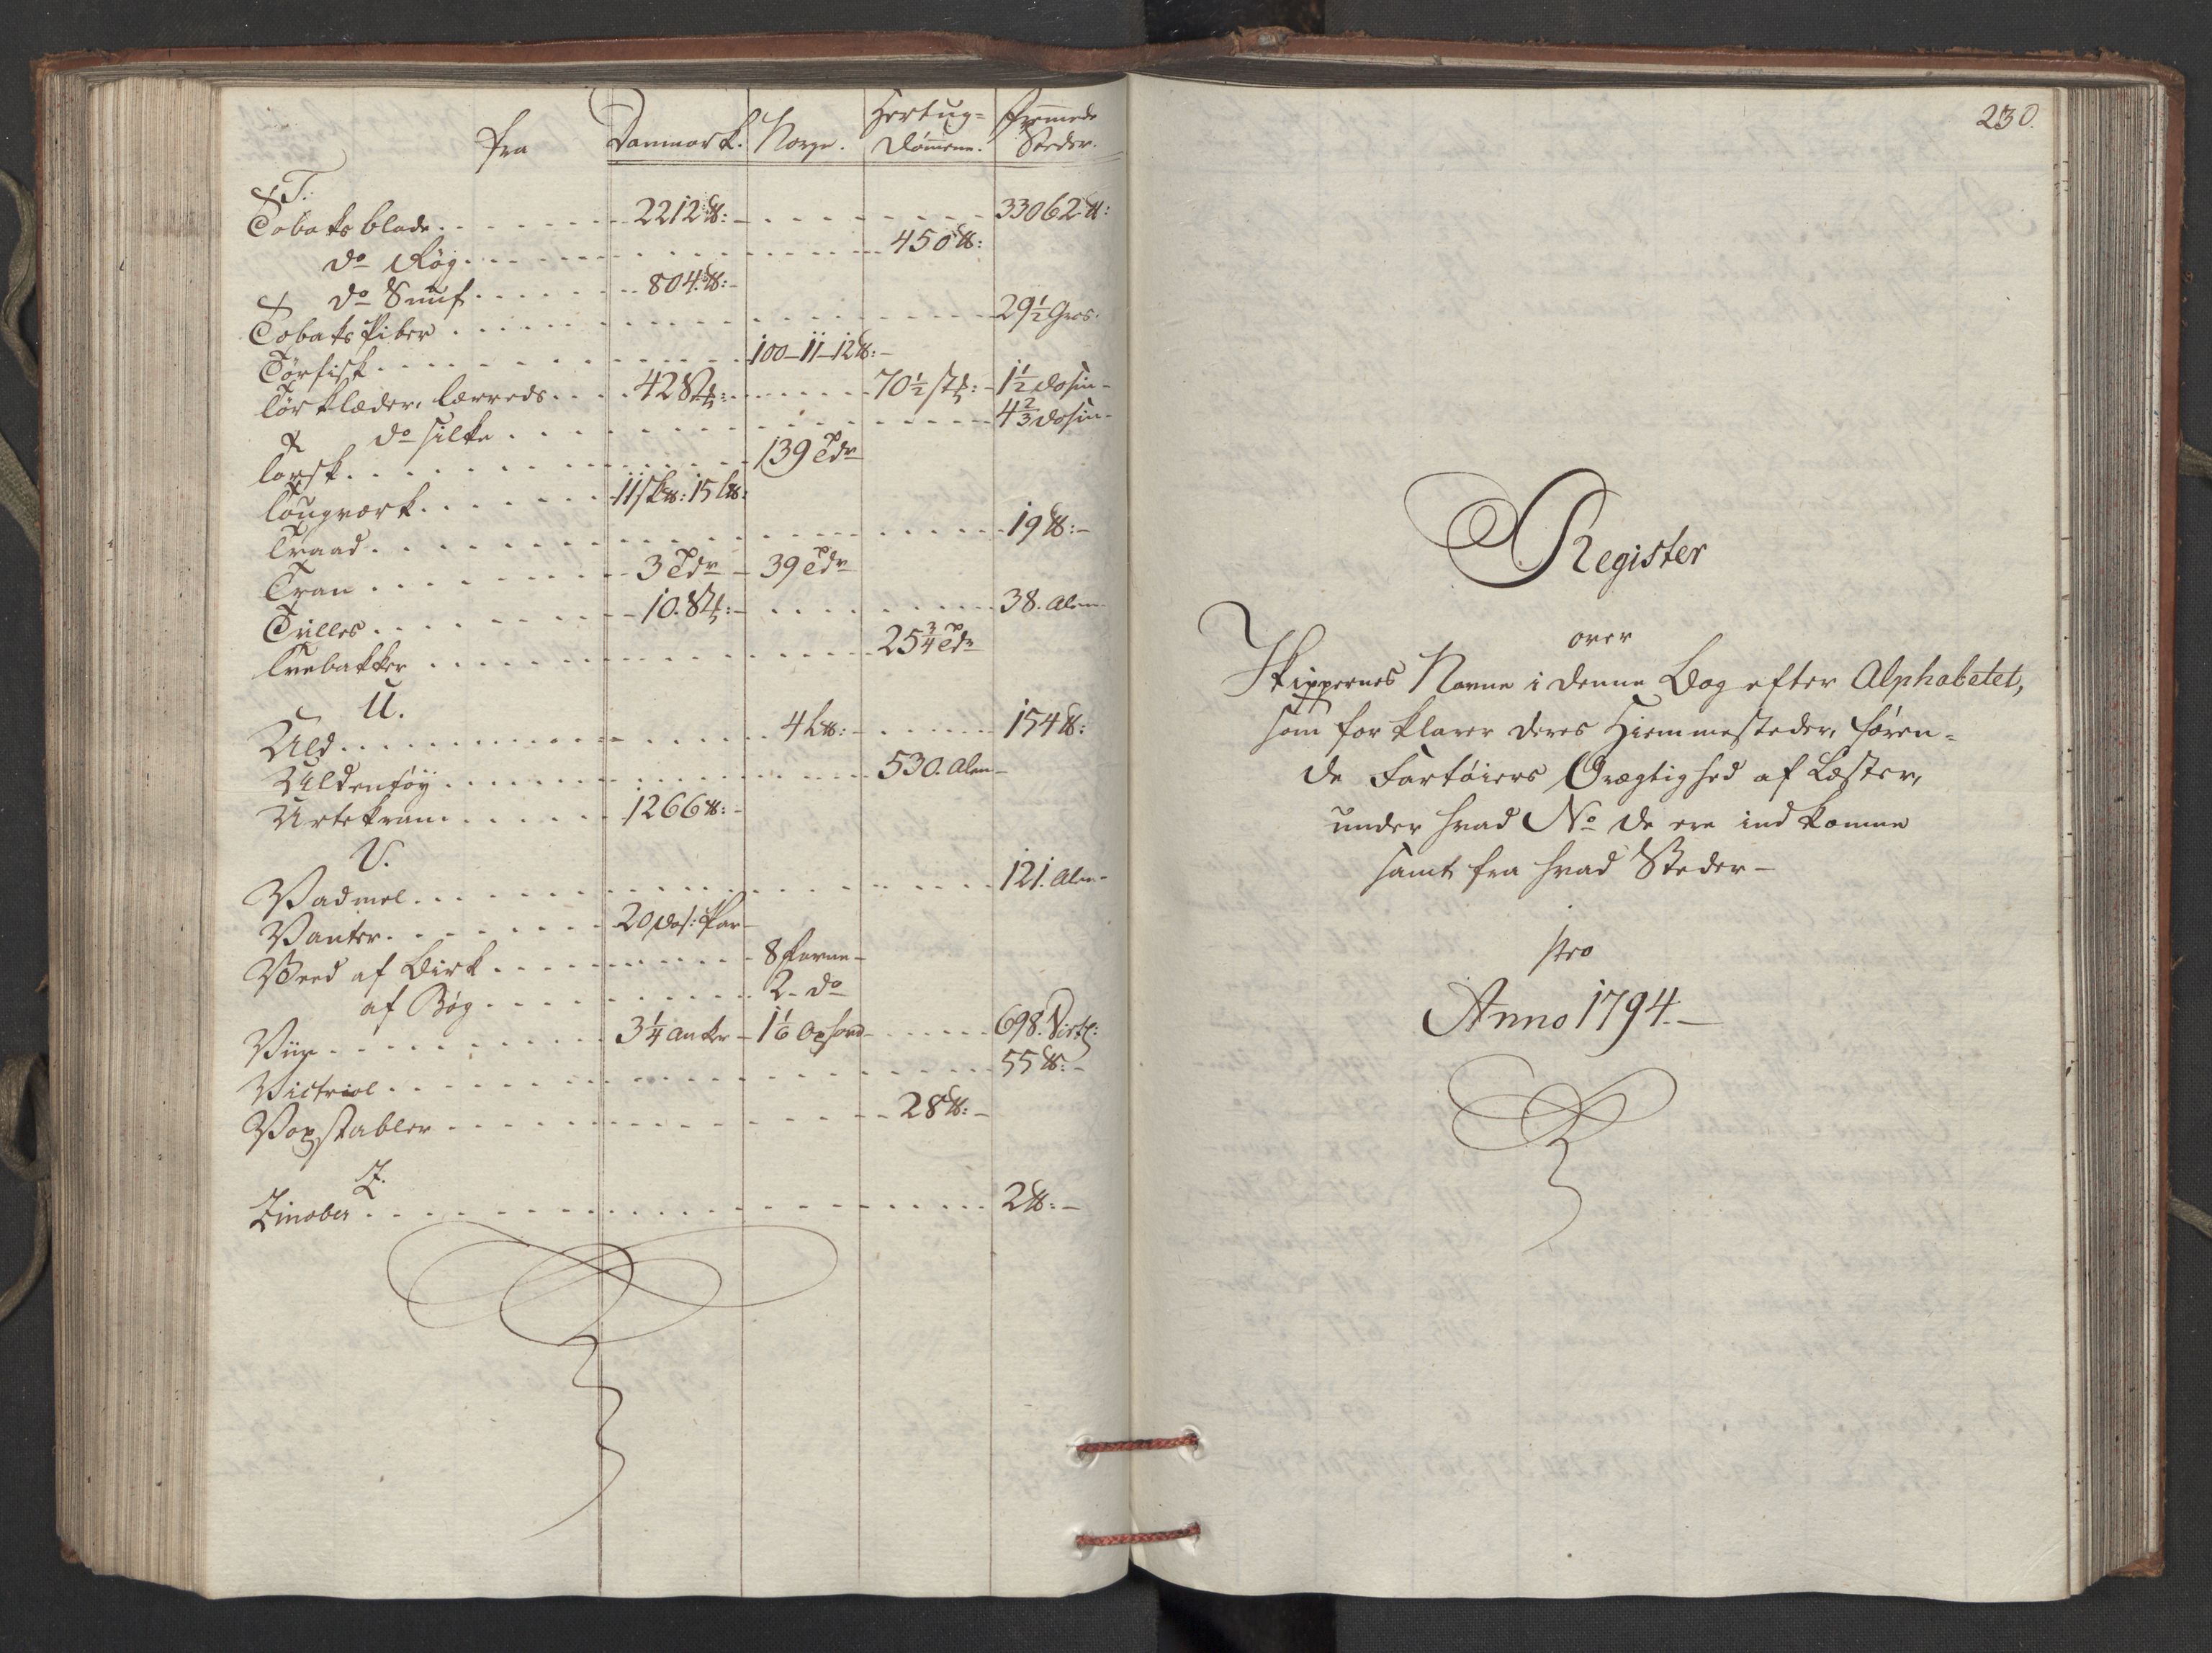 Hertug= fremmede
fra Danmark. Norge. Dömene. Steder.
T.
Tobaks blade 2212 ℔: 33062 ℔:
do Røg 450 ℔:
do Snuuf 804 ℔:
Tobaks Piber 29 1/2 Gros.
Törfisk 100-11-12 ℔:
Törklæder, lærreds 42 St: 70 1/2 st: 1 1/2 dosin
do silke 4 2/3 dosin
Torsk 139 Tdr
Tougværk 11 sk℔: 15 L℔:
Traad 19 ℔:
Tran 3 Tdr 39 Tdr
Tülles 10. St: 38. Alen
Tvebakker 25 3/4 Tdr
U.
Uld 4 L℔: 154 ℔:
Uldentøy 530. Alen
Urtekram 1266 ℔:
V.
Vadmel 121. Alen
Vanter 20 dos: Par
Veed af Birk 8 favne
af Bøg 2. do
Viin 3 1/4 Anker 1 1/6 Oxhovd 698. Virtl:
Victriol 55 ℔:
Voxstabler 28 ℔:
Z.
Zinober 2 ℔:
230.
Register
over
Skippernes Navne i denne Bog efter Alphabetet,
som forklarer deres Hiemmesteder, føren=
de Fartøiers Drægtighed af Læster,
under hvad No de ere indkomne
samt fra hvad Steder
pro
Anno 1794.